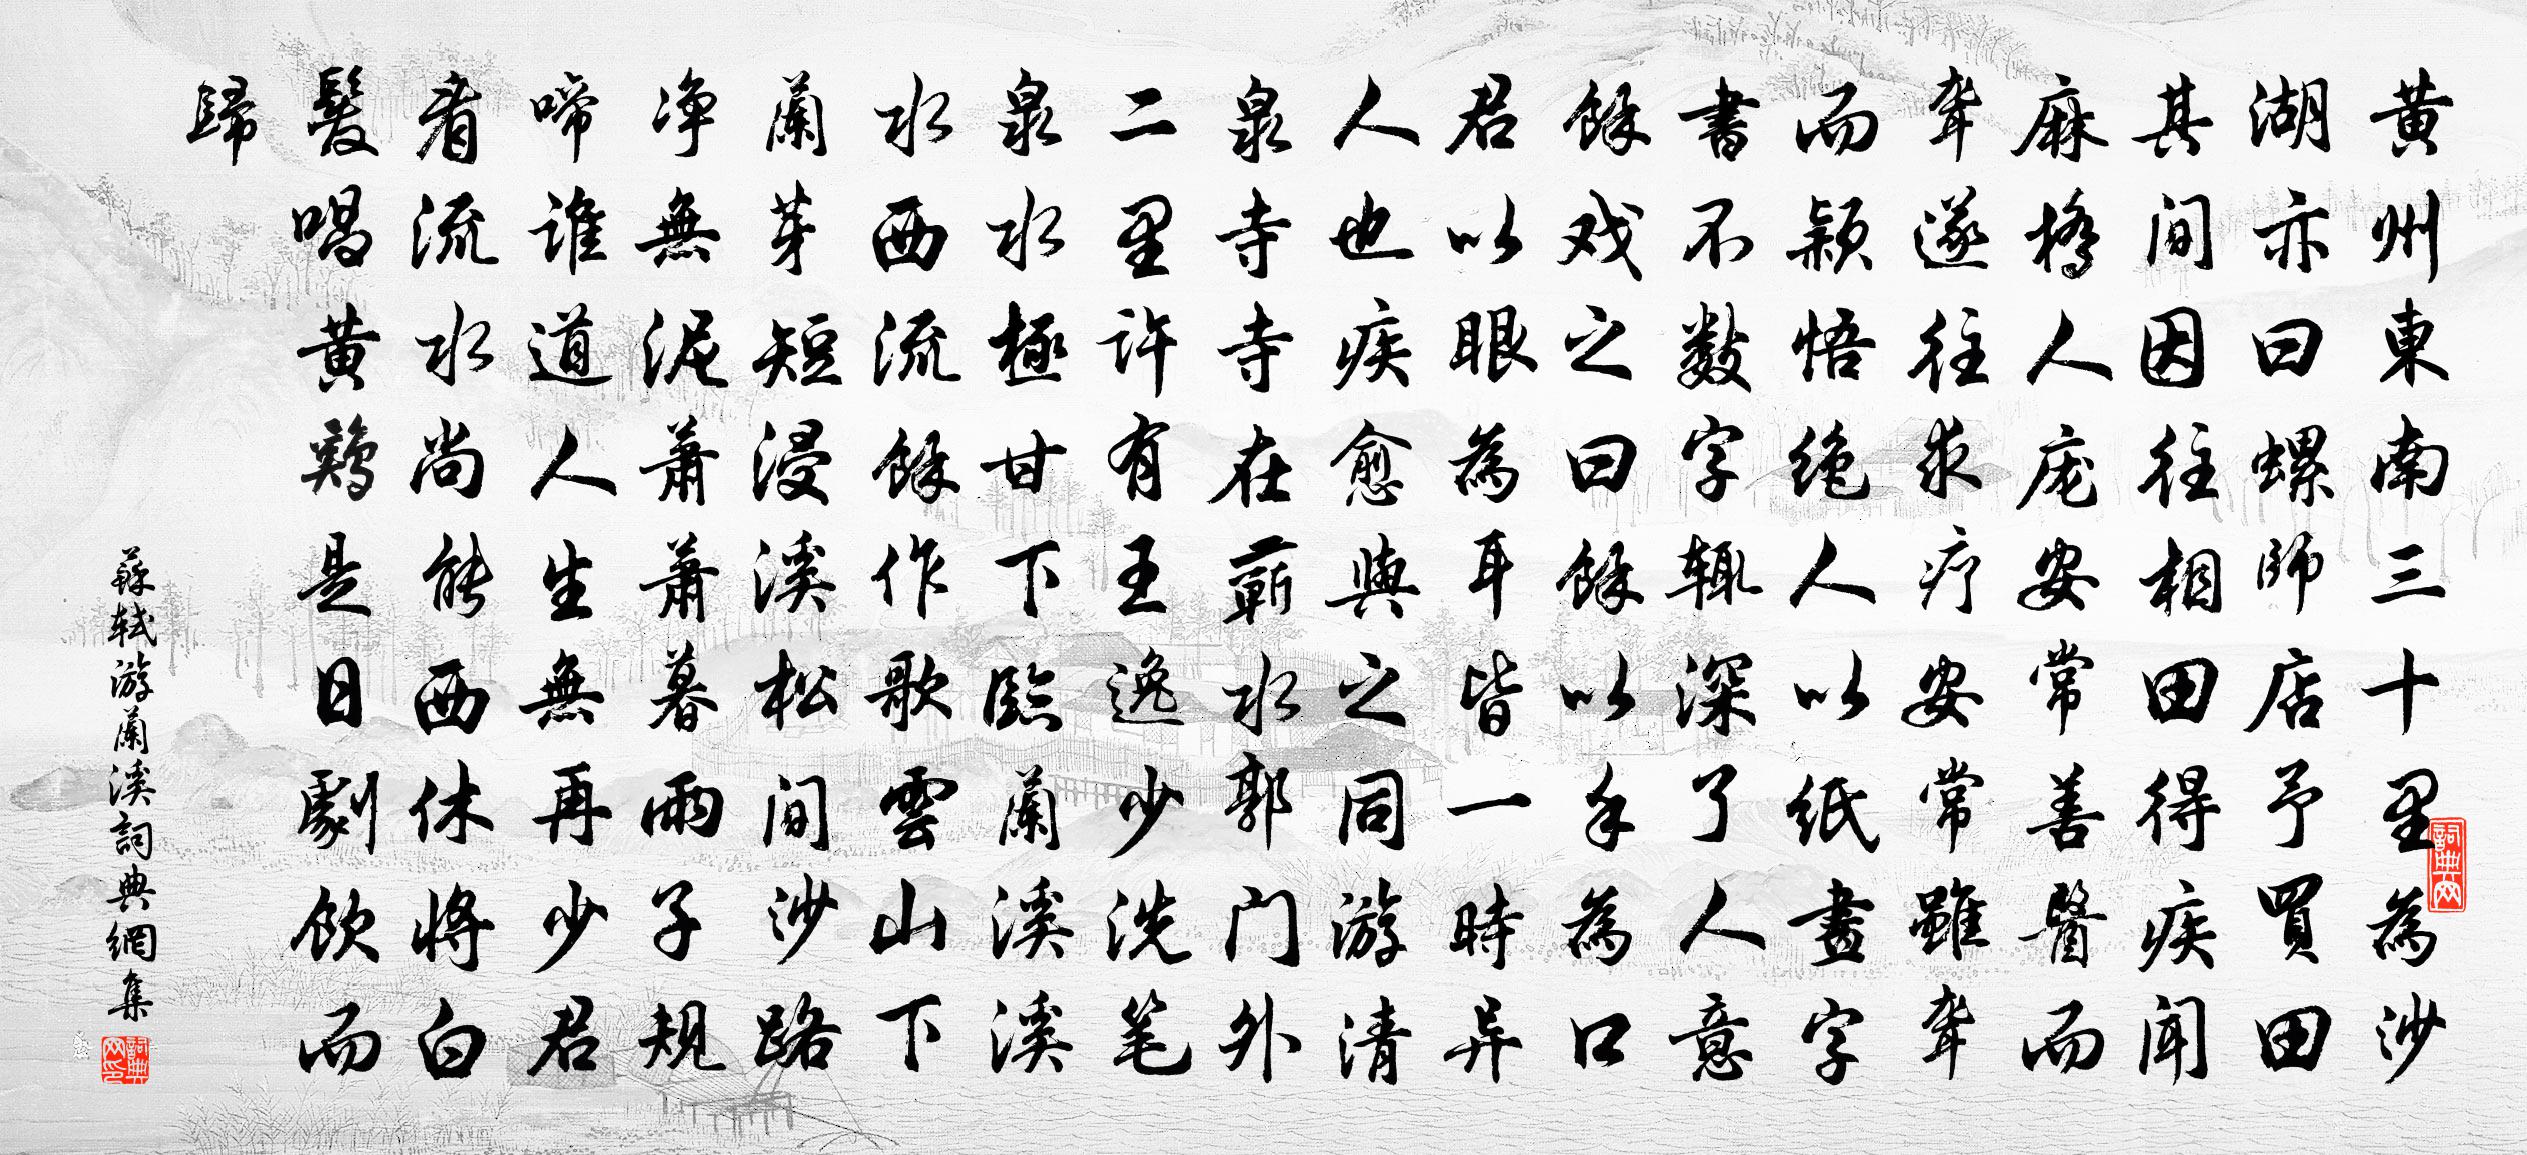 黄州東南三十里為沙
湖亦曰螺師店予買田
其間因往相田得疾聞
麻橋人庞安常善醫而
聋遂往求疗安常雖聋
而颖悟绝人以纸畫字
書不數字辄深了人意
餘戏之曰餘以手為口
君以眼為耳皆一時异
人也疾愈與之同游清
泉寺寺在蕲水郭门外
二里许有王逸少洗笔
泉水極甘下臨蘭溪溪
水西流餘作歌雲山下
蘭芽短浸溪松间沙路
净無泥萧萧暮雨子規
啼谁道人生無再少君
看流水尚能西休將白
髮唱黄鸡是日劇飲而
歸
蘇轼游蘭溪詞典網集
詞典网
詞典网印